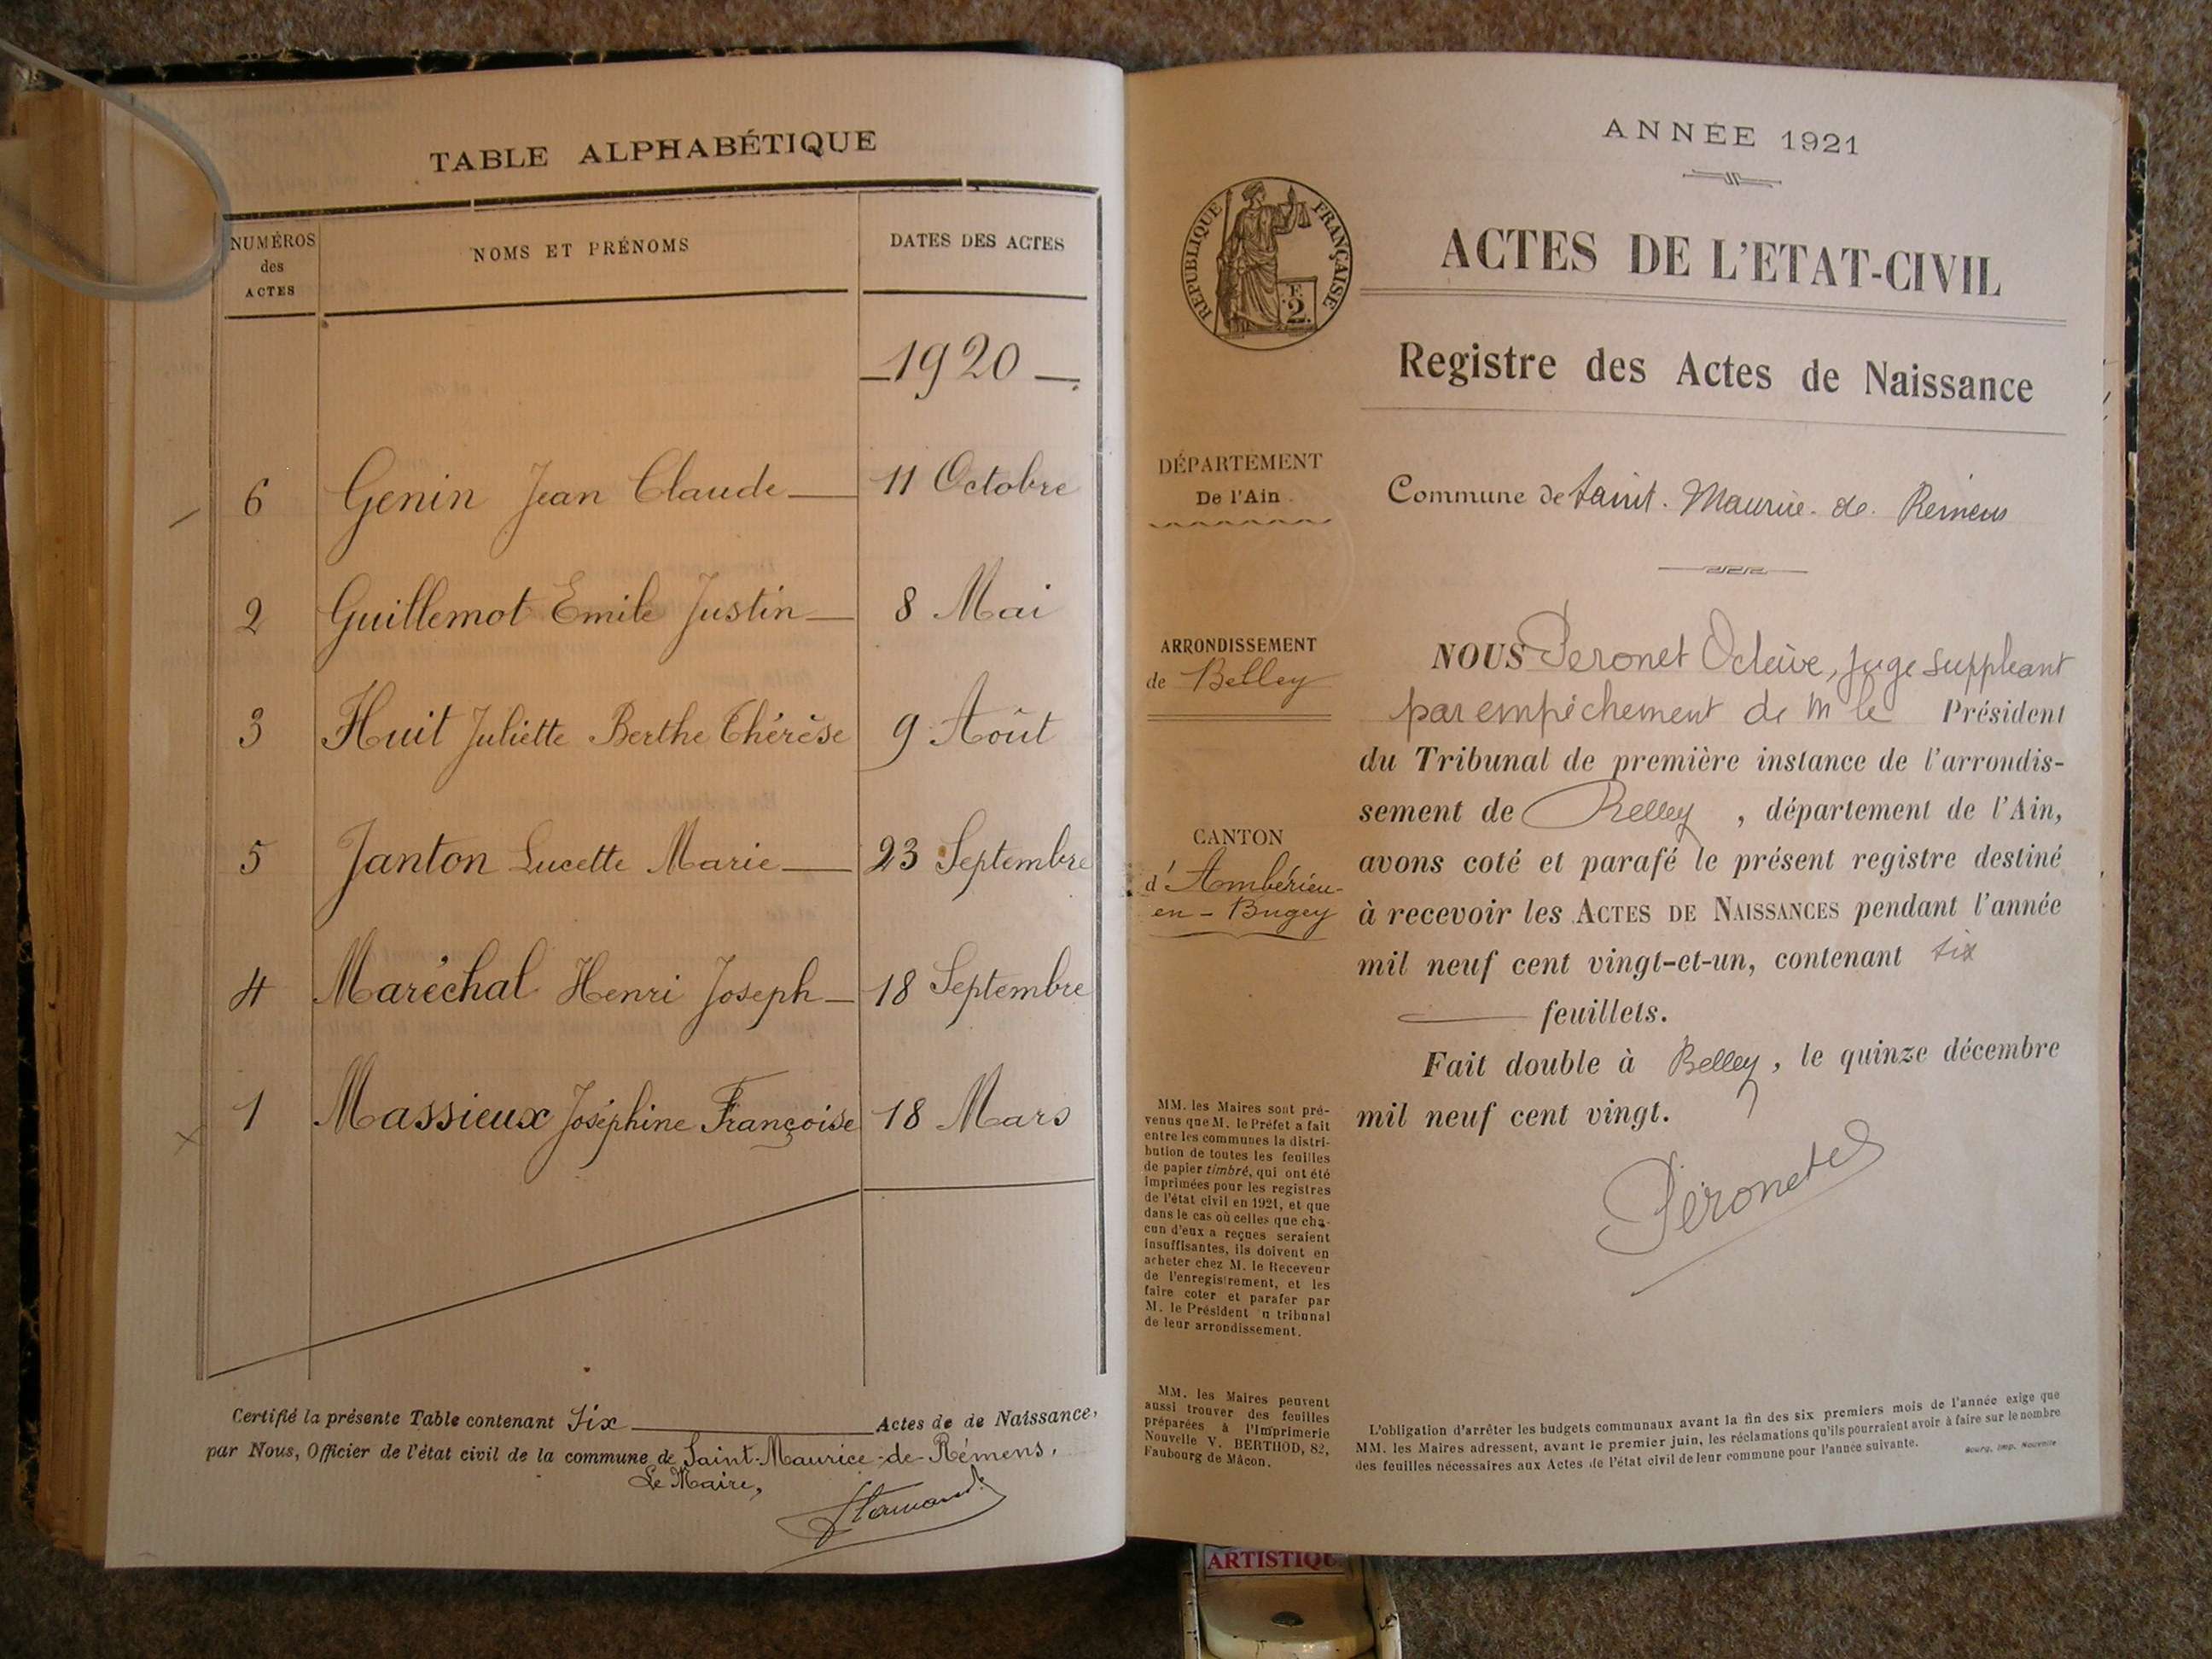 TABLE ALPHABÉTIQUE
NUMÉROS
des
ACTES
NOMS ET PRÉNOMS
DATES DES ACTES
1920
6 Genin Jean Claude 11 Octobre
2 Guillemot Emile Justin 8 Mai
3 Huit Juliette Berthe Thérèse 9 Août
5 Janton Lucette Marie 23 Septembre
4 Maréchal Henri Joseph 18 Septembre
1 Massieux Joséphine Françoise 18 Mars
Certifié la présente Table contenant Six Actes de de Naissance,
par Nous, Officier de l'état civil de la commune de Saint-Maurice-de-Rémens.
Le Maire,
ANNÉE 1921
RÉPUBLIQUE FRANÇAISE
F.
2.
ACTES DE L'ETAT-CIVIL
Registre des Actes de Naissance
DÉPARTEMENT
De l'Ain.
Commune de Saint-Maurice-de-Remens
ARRONDISSEMENT
de Belley
CANTON
d'Ambérieu-
en-Bugey
NOUS Peronet Octave, juge suppleant
par empêchement de M le Président
du Tribunal de première instance de l'arrondis-
sement de Belley, département de l'Ain,
avons coté et parafé le présent registre destiné
à recevoir les ACTES DE NAISSANCES pendant l'année
mil neuf cent vingt-et-un, contenant six
feuillets.
Fait double à Belley, le quinze décembre
mil neuf cent vingt.
Péronet
MM. les Maires sont pré-
venus que M. le Préfet a fait
entre les communes la distri-
bution de toutes les feuilles
de papier timbré, qui ont été
imprimées pour les registres
de l'état civil en 1921, et que
dans le cas où celles que cha-
cun d'eux a reçues seraient
insuffisantes, ils doivent en
acheter chez M. le Receveur
de l'enregistrement, et les
faire coter et parafer par
M. le Président u tribunal
de leur arrondissement.
MM. les Maires peuvent
aussi trouver des feuilles
préparées à l'Imprimerie
Nouvelle V. BERTHOD, 82,
Faubourg de Mâcon.
L'obligation d'arrêter les budgets communaux avant la fin des six premiers mois de l'année exige que
MM. les Maires adressent, avant le premier juin, les réclamations qu'ils pourraient avoir à faire sur le nombre
des feuilles nécessaires aux Actes de l'état civil de leur commune pour l'année suivante.
Bourg, Imp. Nouvelle
ARTISTIQU